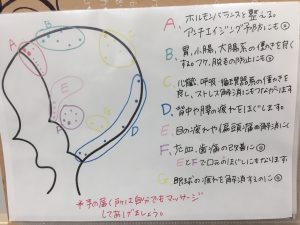 A、ホルモンバランスを整える。
アンチエイジング予防にも◎
B、胃、小腸、大腸系の働きを良く
する。フケ、脱毛の防止にも◎
C、心臓、呼吸、循環器系の働きを
良し、ストレス解消にもつながります
D、背中や腰の疲れをほぐします。
E、目の疲れや偏頭痛の解消に
F、たれ、歯痛の改善に◎
EとFで口元のほぐしにもなります
G、眼球の疲れを解消するのに◎
*手の届く所は自分でもマッサージ
してあげましょう。
A
B
C
E
F
G
D